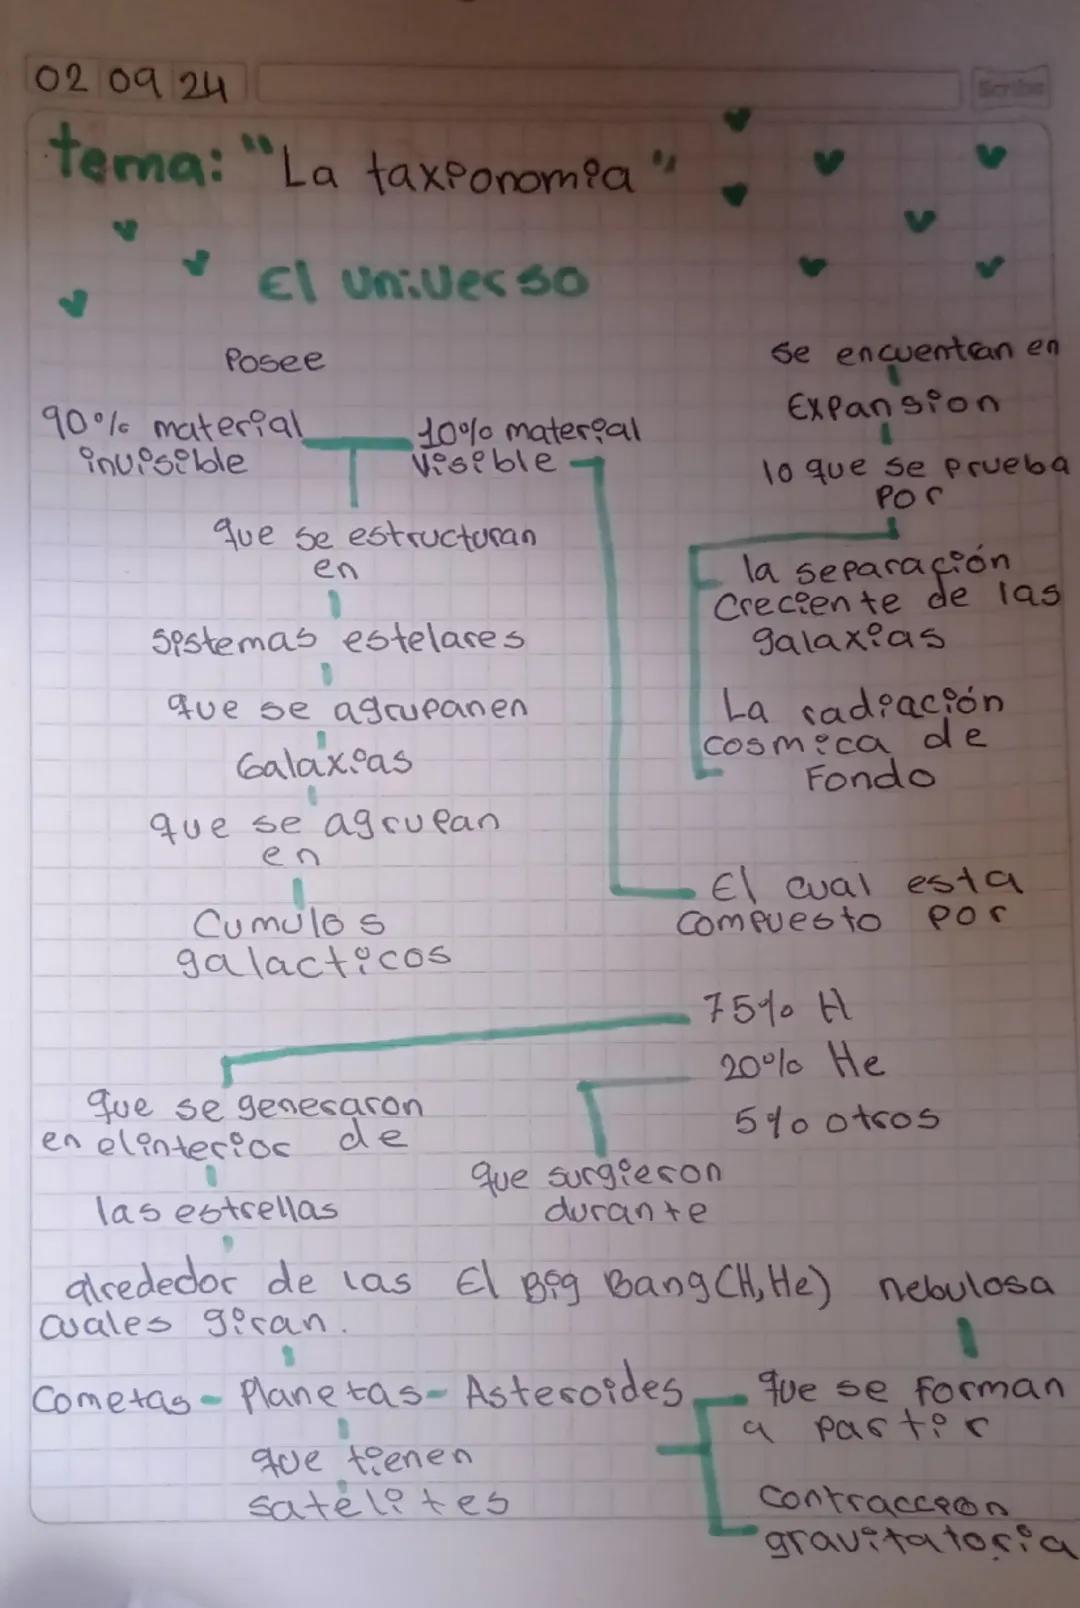 02 09 24
Scribe
tema: "La taxionomia"
El universo
Posee
90% material
invisible
10% material
visible
que se estructuran
en
sistemas estelares
que se agrupanen
Galaxias
que se agrupan
en
Cumulos
galacticos
se encuentran en
Expansion
lo que se prueba
por
la separación
Creciente de las
galaxias
La radiación
cosmica de
Fondo
El cual esta
compuesto por
75% H
20% He
5% otros
que se generaron
en elinterior de
las estrellas
que surgieron
durante
alrededor de las
cuales giran.
El Big Bang (H, He)
nebulosa
Cometas - Planetas - Asteroides
que tienen
satélites
que se forman
a partir
contraccion
gravitatoria